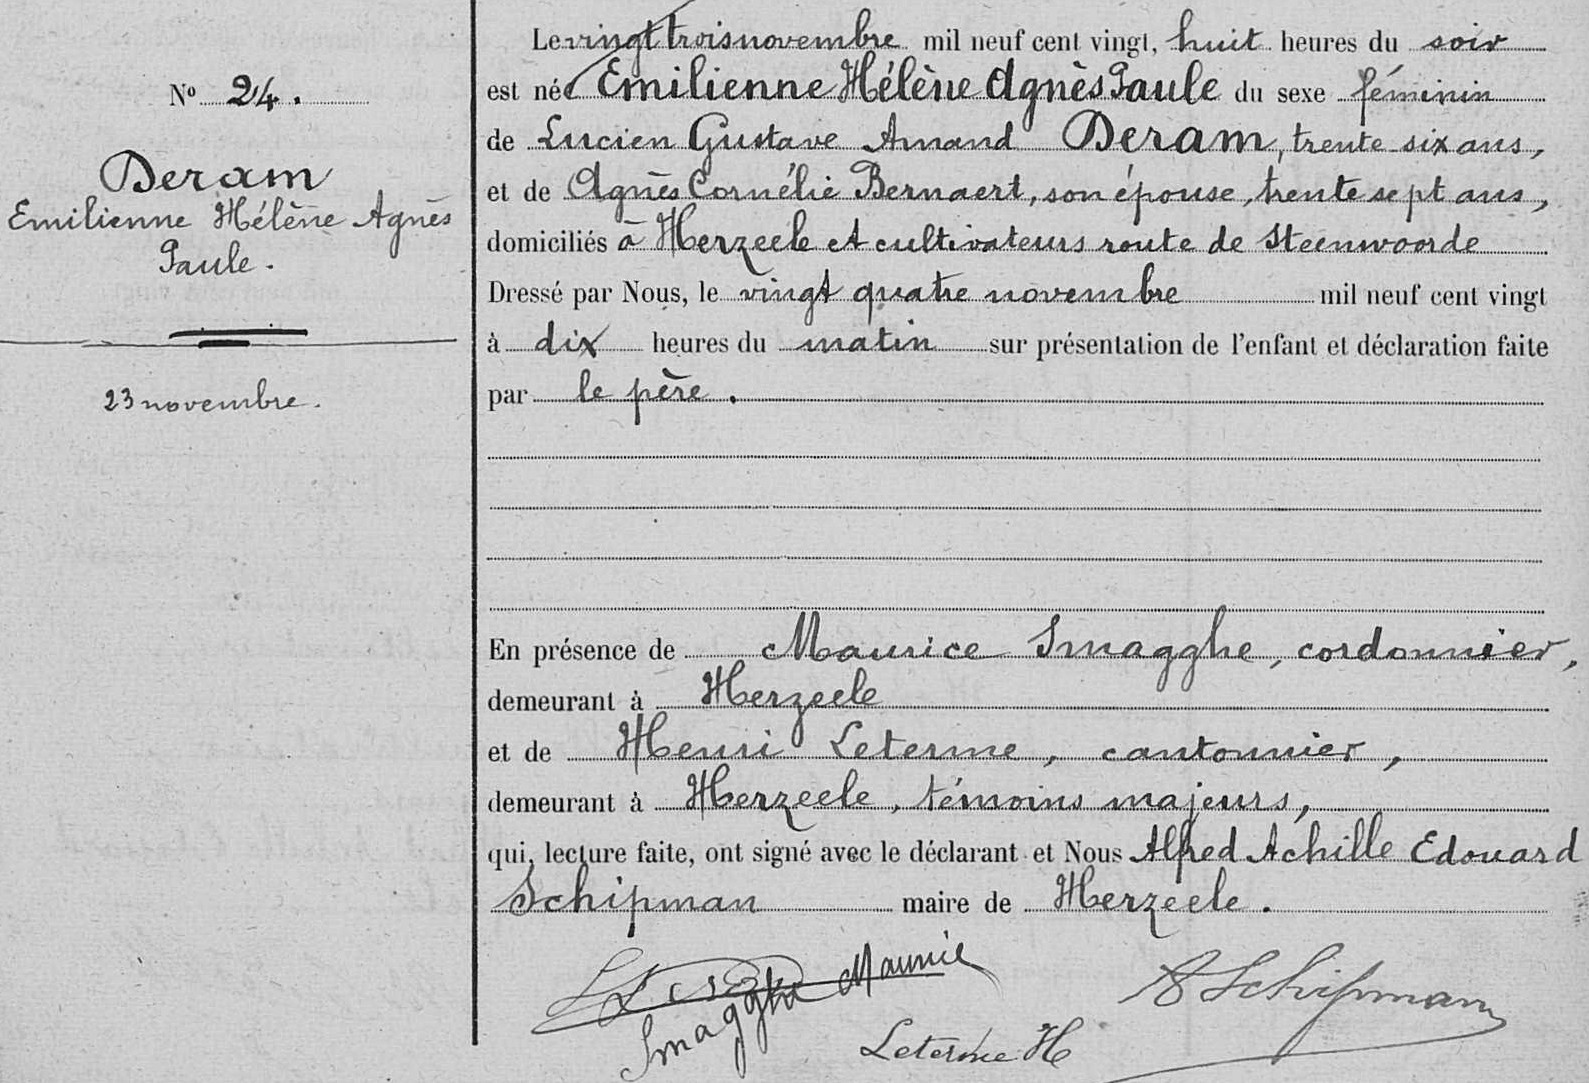 N° 24.
Deram
Emilienne Hélène Agnès
Paule.
23 novembre.
Le vingt trois novembre mil neuf cent vingt, huit heures du soir
est née Emilienne Hélène Agnès Paule du sexe féminin
de Lucien Gustave Amand Deram, trente-six ans,
et de Agnès Cornélie Bernaert, son épouse, trente sept ans,
domiciliés à Herzeele et cultivateurs route de Steenwoorde
Dressé par Nous, le vingt quatre novembre mil neuf cent vingt
à dix heures du matin sur présentation de l'enfant et déclaration faite
par le père.
En présence de Maurice Smagghe, cordonnier,
demeurant à Herzeele
et de Henri Leterme, cantonnier,
demeurant à Herzeele, témoins majeurs,
qui, lecture faite, ont signé avec le déclarant et Nous Alfred Achille Edouard
Schipman maire de Herzeele.
Smagghe Maurice
A Schipman
Leterme H